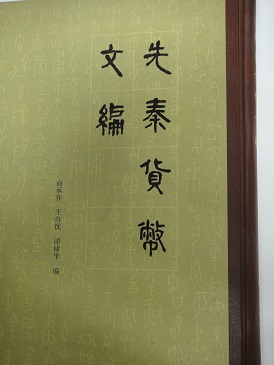 先秦貨幣
文編
商承祚 王貴忱 譚棣华 编